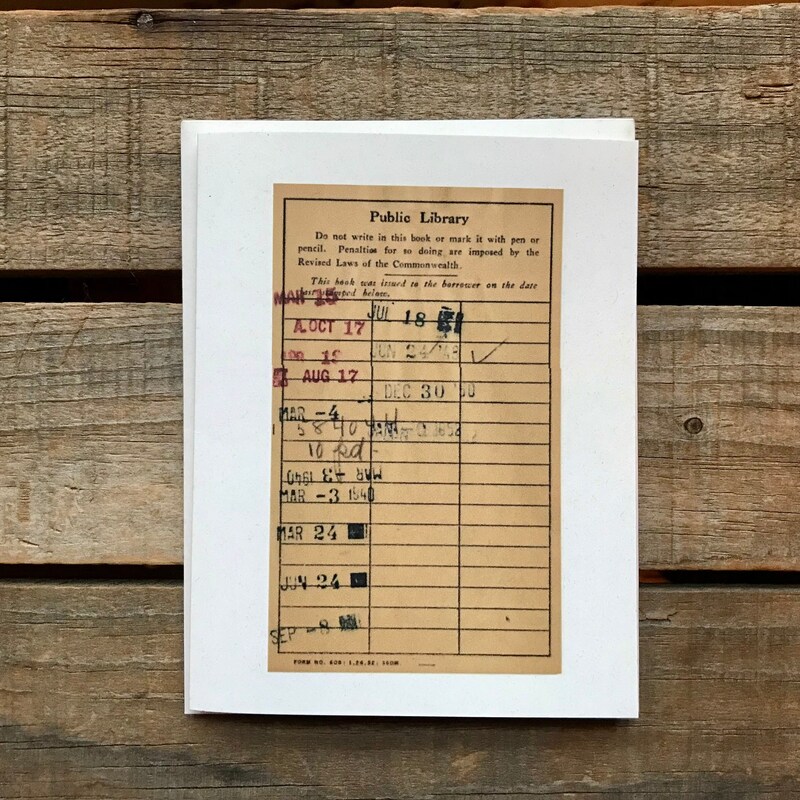 Public Library
Do not write in this book or mark it with pen or
pencil. Penalties for so doing are imposed by the
Revised Laws of the Commonwealth.
This book was issued to the borrower on the date
last stamped below.
MAR 15
A. OCT 17
APR 12
AUG 17
MAR -4
10 pd-
MAR -3 1940
MAR -3 1940
MAR 24
JUN 24
SEP -8
JUL 18
JUN 24
DEC 30
FORM NO. 609: